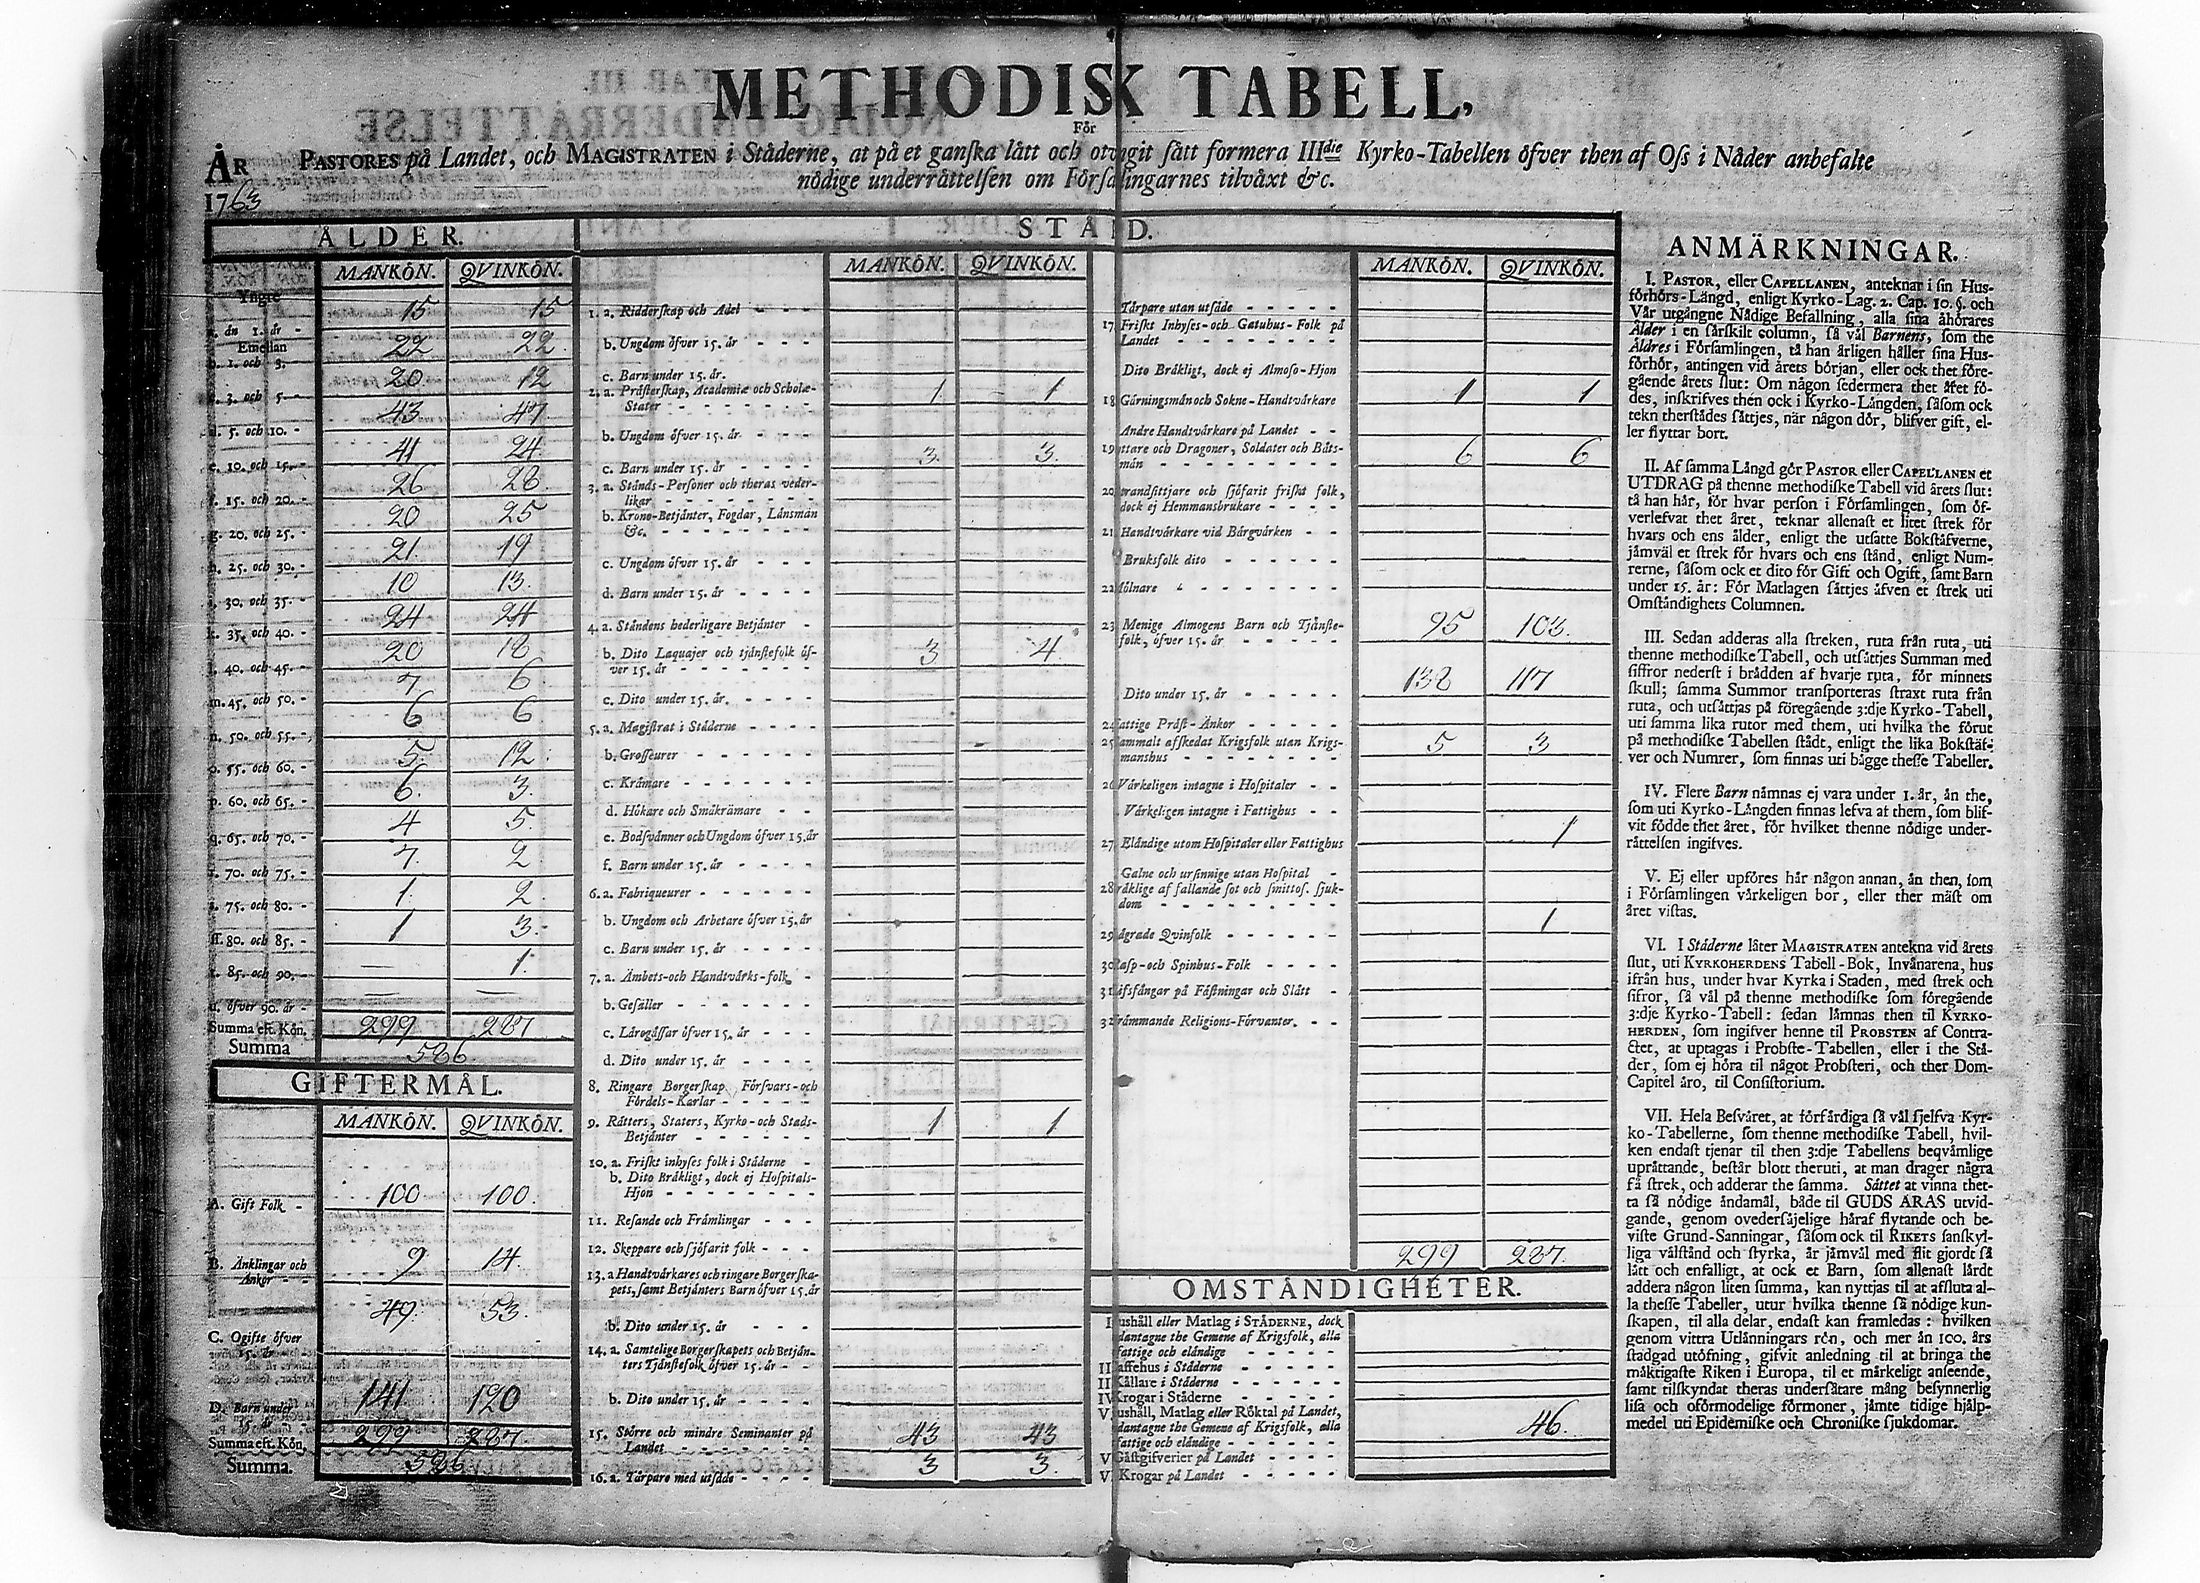 METHODISK TABELL,
För
ÅR PASTORES på Landet, och MAGISTRATEN i Städerne, at på et ganſka lätt och otvugit ſätt formera IIIdie Kyrko-Tabellen öfver then af Oſs i Nåder anbefalte
1763 nödige underrättelſen om Förſamlingarnes tilväxt &c.
ÅLDER.
MANKÖN. QVINKÖN.
Yngre 15 15
a. än 1. år -
Emellan 22 22
b. 1. och 3. 20 12
c. 3. och 5 - 43 47
d. 5. och 10. - 41 24
e. 10. och 15. - 26 28
f. 15. och 20. - 20 25
g. 20. och 25. - 21 19
h. 25. och 30. - 10 13.
i. 30. och 35. - 24 24
k. 35. och 40. - 20 18
l. 40. och 45. - 7 6
m. 45. och 50. - 6 6
n. 50. och 55. - 5. 12.
o. 55. och 60. - 6. 3.
p. 60. och 65. - 4 5.
q. 65. och 70. - 7. 2
r. 70. och 75. - 1. 2.
s. 75. och 80. - 1 3.
ſſ. 80. och 85. - — 1.
t. 85. och 90. - — —
u. öfver 90. år -
Summa eft. Kön. 299 287
Summa 586
GIFTERMÅL.
MANKÖN. QVINKÖN.
A. Gift Folk - 100 100.
B. Änklingar och Änkor - - 9 14.
C. Ogifte öfver 15. år 49. 53.
D. Barn under 15. år 141 120
Summa eft. Kön. 299 287.
Summa. 586
STÅND.
MANKÖN. QVINKÖN.
1. a. Ridderſkap och Adel - - - -
b. Ungdom öfver 15. år - - -
c. Barn under 15. år.
2. a. Präſterſkap, Academiæ och Scholæ-
Stater - - - - - - - 1 1
b. Ungdom öfver 15. år - - - -
c. Barn under 15. år - - - - 3. 3.
3. a. Stånds-Perſoner och theras veder-
likar - - - - - - -
b. Krono-Betjänter, Fogdar, Länsmän
&c. - - - - - - -
c. Ungdom öfver 15. år - - -
d. Barn under 15. år - - - -
4. a. Ståndens hederligare Betjänter -
b. Dito Laquajer och tjänſtefolk öf-
ver 15. år - - - - - - 3 4.
c. Dito under 15. år. - - - -
5. a. Magiſtrat i Städerne - - - -
b. Groſſeurer - - - - - -
c. Krämare - - - - - -
d. Hökare och Småkrämare -
e. Bodſvänner och Ungdom öfver 15. år
f. Barn under 15. år - - - -
6. a. Fabriqueurer - - - - - -
b. Ungdom och Arbetare öfver 15. år
c. Barn under 15. år - - - -
7. a. Ämbets- och Handtvärks-folk -
b. Geſäller - - - - - - -
c. Lärogåſſar öfver 15. år - - -
d. Dito under 15. år - - - -
8. Ringare Borgerſkap Förſvars- och
Fördels-Karlar - - - - -
9. Rätters, Staters, Kyrko- och Stads-
Betjänter - - - - - - 1 1
10. a. Friſkt inhyſes folk i Städerne -
b. Dito Bräkligt, dock ej Hoſpitals-
Hjon - - - - - - -
11. Reſande och Främlingar - - -
12. Skeppare och ſjöfarit folk - - -
13. a Handtvärkares och ringare Borgerſka-
pets, ſamt Betjänters Barn öfver 15. år
b. Dito under 15. år - - -
14. a. Samtelige Borgerſkapets och Betjän-
ters Tjänſtefolk öfver 15. år - -
b. Dito under 15. år - - -
15. Större och mindre Seminanter på
Landet - - - - - - - 43 43
16. a. Tårpare med utſäde - - - - 3 3.
MANKÖN. QVINKÖN.
Tårpare utan utſäde - - - - -
17. Friſkt Inhyſes- och Gatuhus-Folk på
Landet - - - - - - - -
Dito Bräkligt, dock ej Almoſo-Hjon
18 Gärningsmän och Sokne-Handtvärkare 1 1
Andre Handtvärkare på Landet - -
19 ttare och Dragoner, Soldater och Båts-
män - - - - - - - - 6 6
20 trandſittjare och ſjöfarit friſkt folk,
dock ej Hemmansbrukare - - - -
21. Handtvärkare vid Bärgvärken - -
Bruksfolk dito - - - - - -
22 Mölnare - - - - - - -
23 Menige Almogens Barn och Tjänſte-
folk, öfver 15. år - - - - - 95 103.
Dito under 15. år - - - - - 138 117
24 attige Präſt-Änkor - - - - -
25 ammalt afſkedat Krigsfolk utan Krigs-
manshus - - - - - - - 5 3
26 Värkeligen intagne i Hoſpitaler - -
Värkeligen intagne i Fattighus - -
27 Eländige utom Hoſpitaler eller Fattighus 1
Galne och urſinnige utan Hoſpital -
28 räklige af fallande ſot och ſmittoſ. ſjuk-
dom - - - - - - - -
29 ägrade Qvinfolk - - - - - - 1
30 Raſp- och Spinhus-Folk - - - -
31 ifsfångar på Fäſtningar och Slätt -
32 rämmande Religions-Förvanter. - -
299 287.
OMSTÄNDIGHETER.
I ushåll eller Matlag i STÄDERNE, dock
dantagne the Gemene af Krigsfolk, alla
fattige och eländige - - - - -
II affehus i Städerne - - - - -
II Källare i Städerne - - - - -
IV Krogar i Städerne - - - - -
V ushåll, Matlag eller Röktal på Landet,
dantagne the Gemene af Krigsfolk, alla
fattige och eländige - - - - - 46.
V Gäſtgifverier på Landet - - - -
V Krogar på Landet - - - - -
ANMÄRKNINGAR.
I. PASTOR, eller CAPELLANEN, anteknar i ſin Hus-
förhörs-Längd, enligt Kyrko-Lag. 2. Cap. 10. §. och
Vår utgångne Nådige Befallning, alla ſina åhörares
Ålder i en ſärſkilt column, ſå väl Barnens, ſom the
Äldres i Förſamlingen, tå han årligen håller ſina Hus-
förhör, antingen vid årets början, eller ock thet före-
gående årets ſlut: Om någon ſedermera thet året fö-
des, inſkrifves then ock i Kyrko-Längden, ſåſom ock
tekn therſtädes ſättjes, när någon dör, blifver gift, el-
ler flyttar bort.
II. Af ſamma Längd gör PASTOR eller CAPELLANEN et
UTDRAG på thenne methodiſke Tabell vid årets ſlut:
tå han här, för hvar perſon i Förſamlingen, ſom öf-
verlefvat thet året, teknar allenaſt et litet ſtrek för
hvars och ens ålder, enligt the utſatte Bokſtäfverne,
jämväl et ſtrek för hvars och ens ſtånd, enligt Num-
rerne, ſåſom ock et dito för Gift och Ogift, ſamt Barn
under 15. år: För Matlagen ſättjes äfven et ſtrek uti
Omſtändighets Columnen.
III. Sedan adderas alla ſtreken, ruta från ruta, uti
thenne methodiſke Tabell, och utſättjes Summan med
ſiffror nederſt i brädden af hvarje ruta, för minnets
ſkull; ſamma Summor tranſporteras ſtraxt ruta från
ruta, och utſättjas på föregående 3:dje Kyrko-Tabell,
uti ſamma lika rutor med them, uti hvilka the förut
på methodiſke Tabellen ſtådt, enligt the lika Bokſtäf-
ver och Numrer, ſom finnas uti bägge theſſe Tabeller.
IV. Flere Barn nämnas ej vara under 1. år, än the,
ſom uti Kyrko-Längden finnas lefva at them, ſom blif-
vit födde thet året, för hvilket thenne nödige under-
rättelſen ingifves.
V. Ej eller upföres här någon annan, än then, ſom
i Förſamlingen värkeligen bor, eller ther mäſt om
året viſtas.
VI. I Städerne låter MAGISTRATEN antekna vid årets
ſlut, uti KYRKOHERDENS Tabell-Bok, Invånarena, hus
ifrån hus, under hvar Kyrka i Staden, med ſtrek och
ſifror, ſå väl på thenne methodiſke ſom föregående
3:dje Kyrko-Tabell: ſedan lämnas then til KYRKO-
HERDEN, ſom ingifver henne til PROBSTEN af Contra-
ctet, at uptagas i Probſte-Tabellen, eller i the Stä-
der, ſom ej höra til något Probſteri, och ther Dom-
Capitel äro, til Conſiſtorium.
VII. Hela Beſväret, at förfärdiga ſå väl ſjelfva Kyr-
ko-Tabellerne, ſom thenne methodiſke Tabell, hvil-
ken endaſt tjenar til then 3:dje Tabellens beqvämlige
uprättande, beſtår blott theruti, at man drager några
få ſtrek, och adderar the ſamma. Sättet at vinna thet-
ta ſå nödige ändamål, både til GUDS ÄRAS utvid-
gande, genom ovederſäjelige häraf flytande och be-
viſte Grund-Sanningar, ſåſom ock til RIKETS ſanſkyl-
liga välſtånd och ſtyrka, är jämväl med flit gjordt ſå
lätt och enfalligt, at ock et Barn, ſom allenaſt lärdt
addera någon liten ſumma, kan nyttjas til at afſluta al-
la theſſe Tabeller, utur hvilka thenne ſå nödige kun-
ſkapen, til alla delar, endaſt kan framledas: hvilken
genom vittra Utlänningars rön, och mer än 100. års
ſtadgad utöfning, gifvit anledning til at bringa the
mäktigaſte Riken i Europa, til et märkeligt anſeende,
ſamt tilſkyndat theras underſåtare mång beſynnerlig
liſa och oförmodelige förmoner, jämte tidige hjälp-
medel uti Epidemiſke och Chroniſke ſjukdomar.